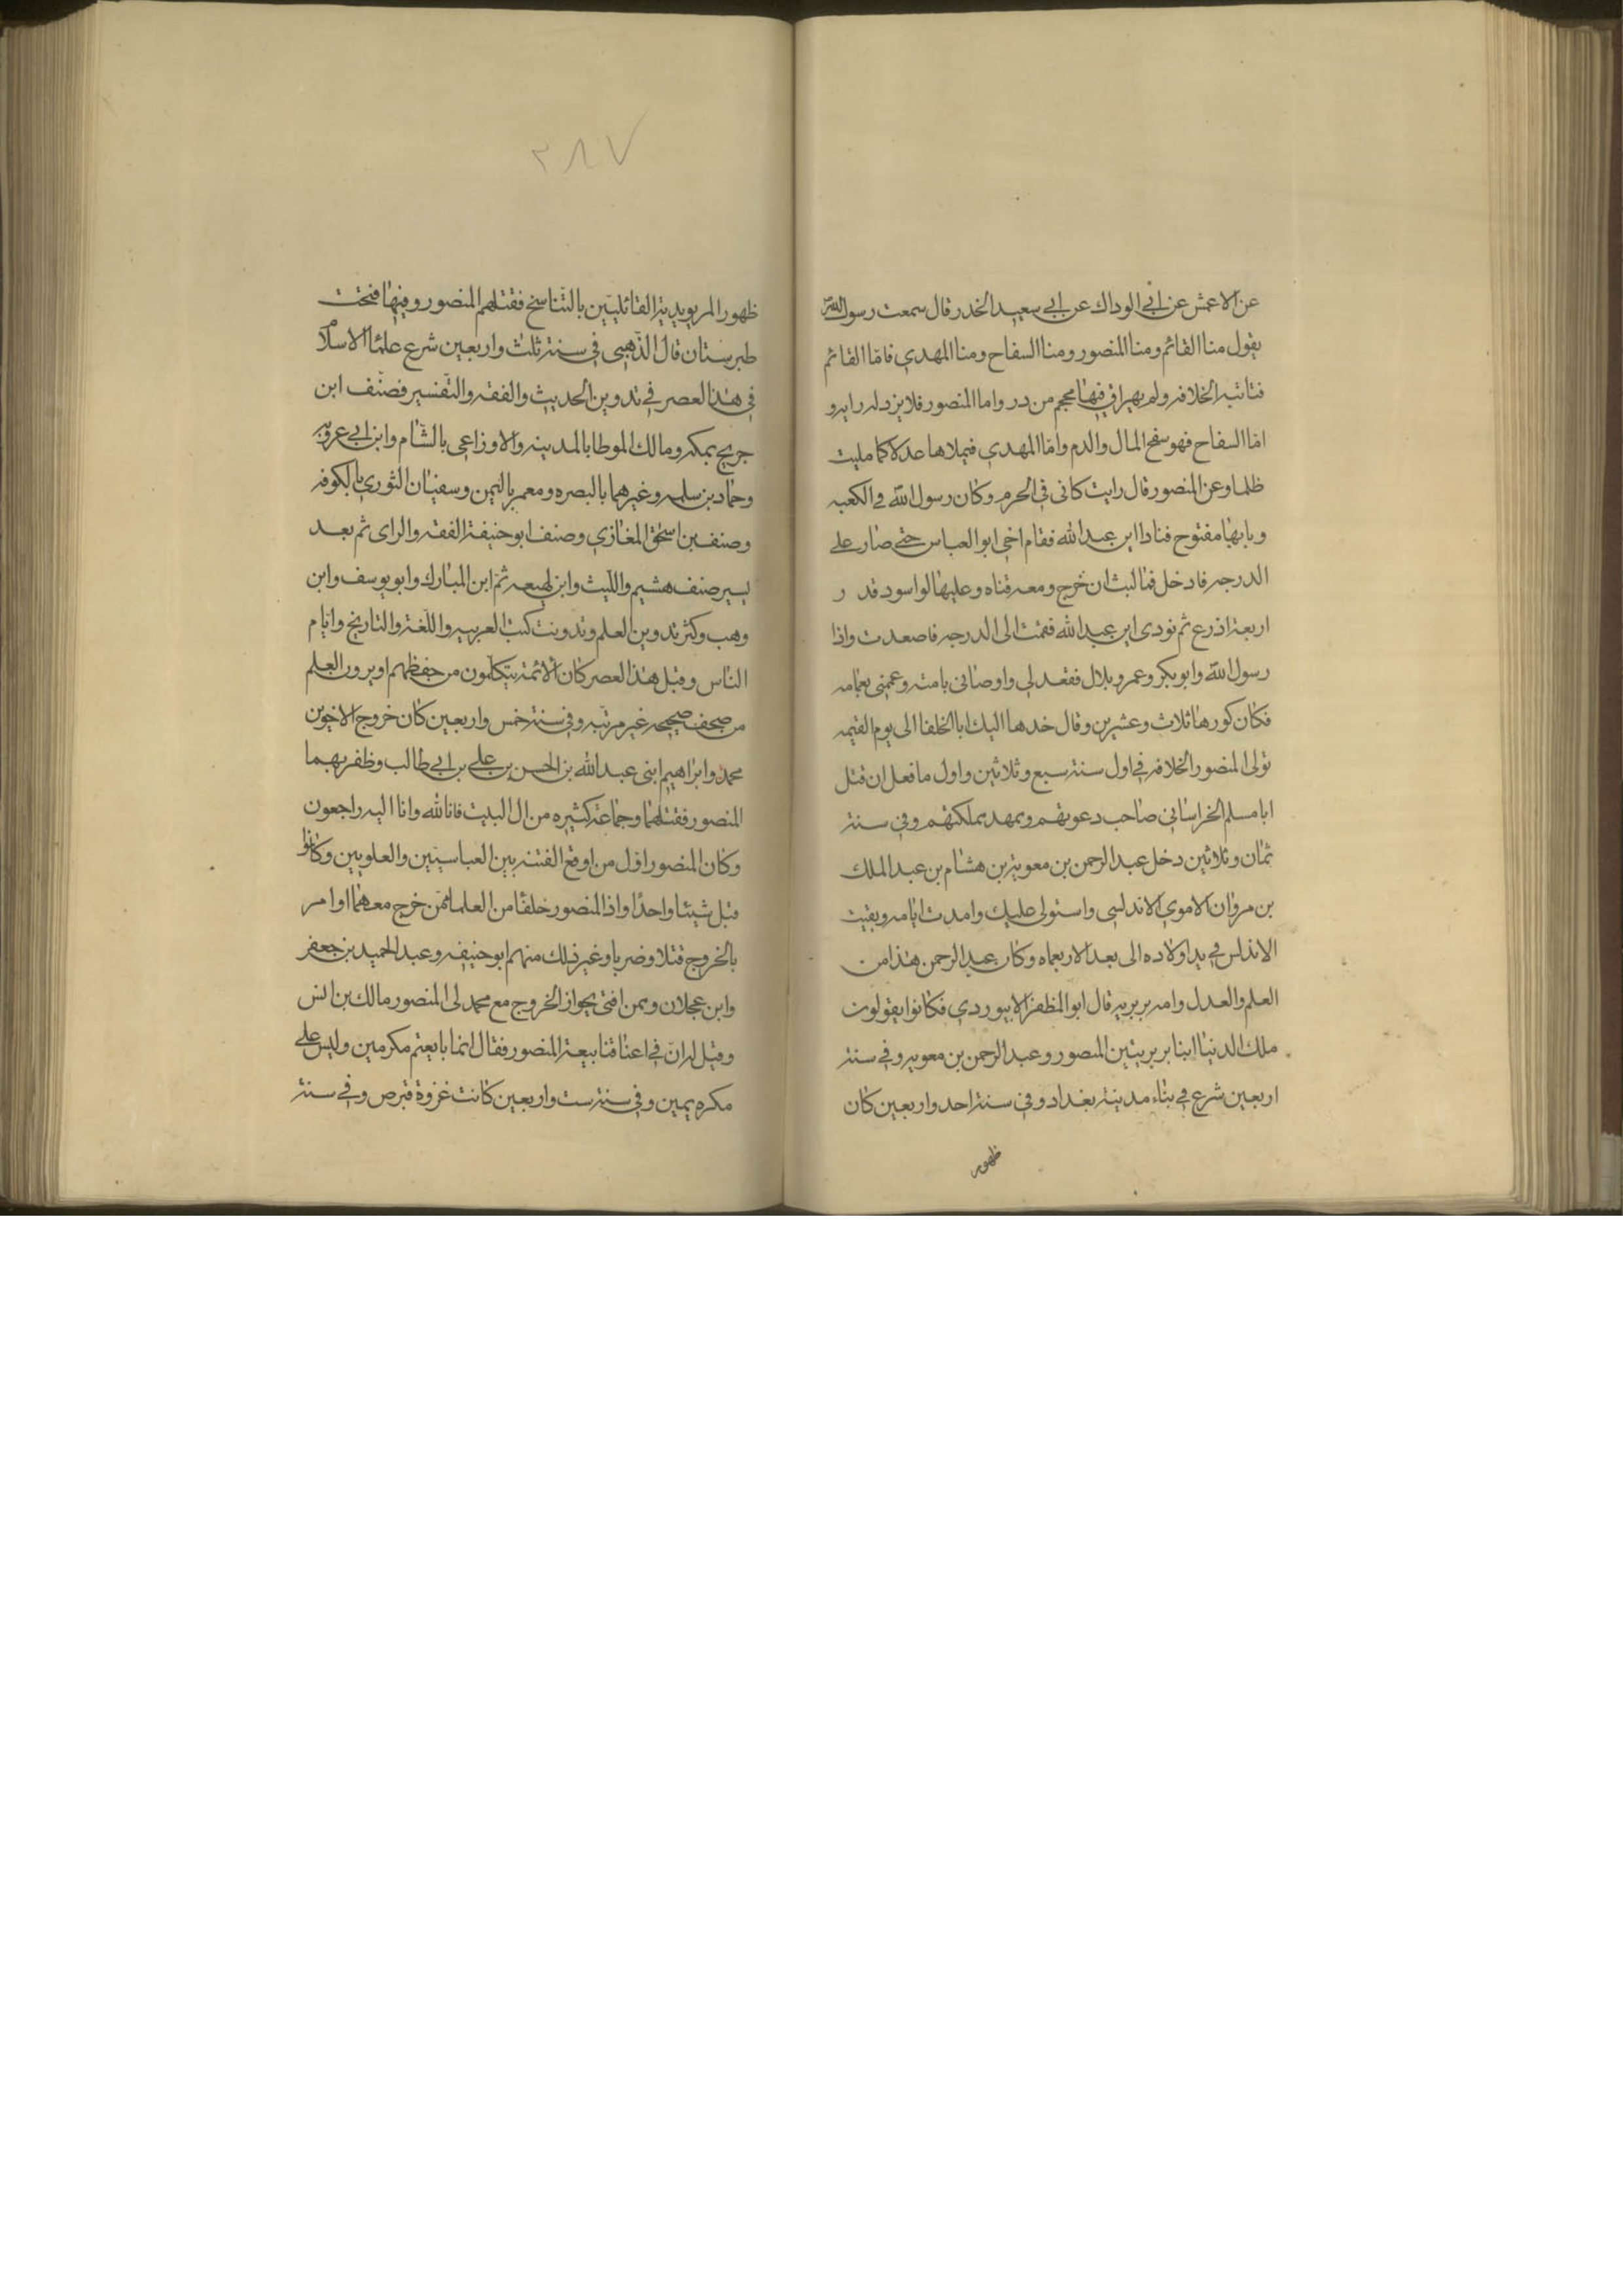 عن الاعمش عن ابي الوداك عن ابي سعيد الخدر قال سمعت رسول الله
يقول منا القائم ومنا المنصور ومنا السفاح ومنا المهدي فامّا القائم
فتاتيه الخلافه ولم يهراق فيها محجم من در واما المنصور فلا يزد له رايه و
امّا السفاح فهو سفح المال والدم وامّا المهدي فيملاها عدلا كما مليت
ظلما وعن المنصور قال رايت كانى في الحرم وكان رسول الله في الكعبه
وبابها مفتوح فنادا اين عبد الله فقام اخي ابو العباس حتى صار على
الدرجه فادخل فما لبث ان خرج ومعه قناه وعليها لوا اسود قد ر
اربعة اذرع ثم نودى اين عبد الله فقمت الى الدرجه فاصعدت واذا
رسول الله وابو بكر وعمر وبلال فقعد لى واوصانى بامته وعممنى بعمامه
فكان كورها ثلاث وعشرين وقال خدها اليك ابا الخلفا الى يوم القيمه
تولى المنصور الخلافه في اول سنة سبع وثلاثين واول ما فعل ان قتل
ابا مسلم الخراسانى صاحب دعوتهم وممهد مملكتهم وفى سنة
ثمان وثلاثين دخل عبد الرحمن بن معوية بن هشام بن عبد الملك
بن مروان الاموي الاندلسى واستولى عليك وامدت ايامه وبقيت
الاندلس في يد اولاده الى بعد الاربعماه وكان عبد الرحمن هذا من
العلم والعدل وامه بربريه قال ابو المظفر الابيوردي فكانوا يقولون
ملك الدنيا ابنا بربريتين المنصور وعبد الرحمن بن معويه وفى سنة
اربعين شرع في بناء مدينة بغداد وفى سنة احد واربعين كان
ظهور
٢٨٧
ظهور المريويدية القائليّين بالتّناسخ فقتلهم المنصور وفيها فتحت
طبرستان قال الذّهبى في سنة ثلث واربعين شرع علما الاسلام
في هذا العصر في تدوين الحديث والفقه والتّفسير فصنّف ابن
جريج بمكه ومالك الموطا بالمدينه والاوزاعى بالشّام وابن ابي عروبه
وحماد بن سلمه وغيرهما بالبصره ومعمر باليمن وسفيان الثوري بالكوفه
وصنف بن اسحق المغازي وصنف ابو حنيفة الفقه والراى ثم بعد
يسير صنف هشيم واللّيث وابن لهيعه ثمّ ابن المبارك وابو يوسف وابن
وهب وكثر تدوين العلم وتدوينت كتب العربيه واللّغة والتاريخ وايام
الناس وقبل هذا العصر كان الائمّة يتكلّمون من حفظهم او يرون العلم
من صحف صحيحه غير مرتّبه وفى سنة خمس واربعين كان خروج الاخوين
محمّد وابراهيم ابنى عبد الله بن الحسن بن علي بن ابي طالب وظفر بهما
المنصور فقتلهما وجماعة كثيره من ال البيت فانا لله وانا اليه راجعون
وكان المنصور اوّل من اوقع الفتنة بين العباسيّين والعلويين وكانوا
قبل شيئا واحدًا واذا المنصور خلقا من العلما ممّن خرج معهما او امر
بالخروج قتلا وضربا وغير ذلك منهم ابو حنيفه وعبد الحميد بن جعفر
وابن عجلان وممن افتى بجواز الخروج مع محمد لى المنصور مالك بن انس
وقيل له انّ في اعناقنا بيعة المنصور فقال انما بايعتم مكرمين وليس على
مكره يمين وفى سنة ست واربعين كانت غزوة قبرص وفي سنة